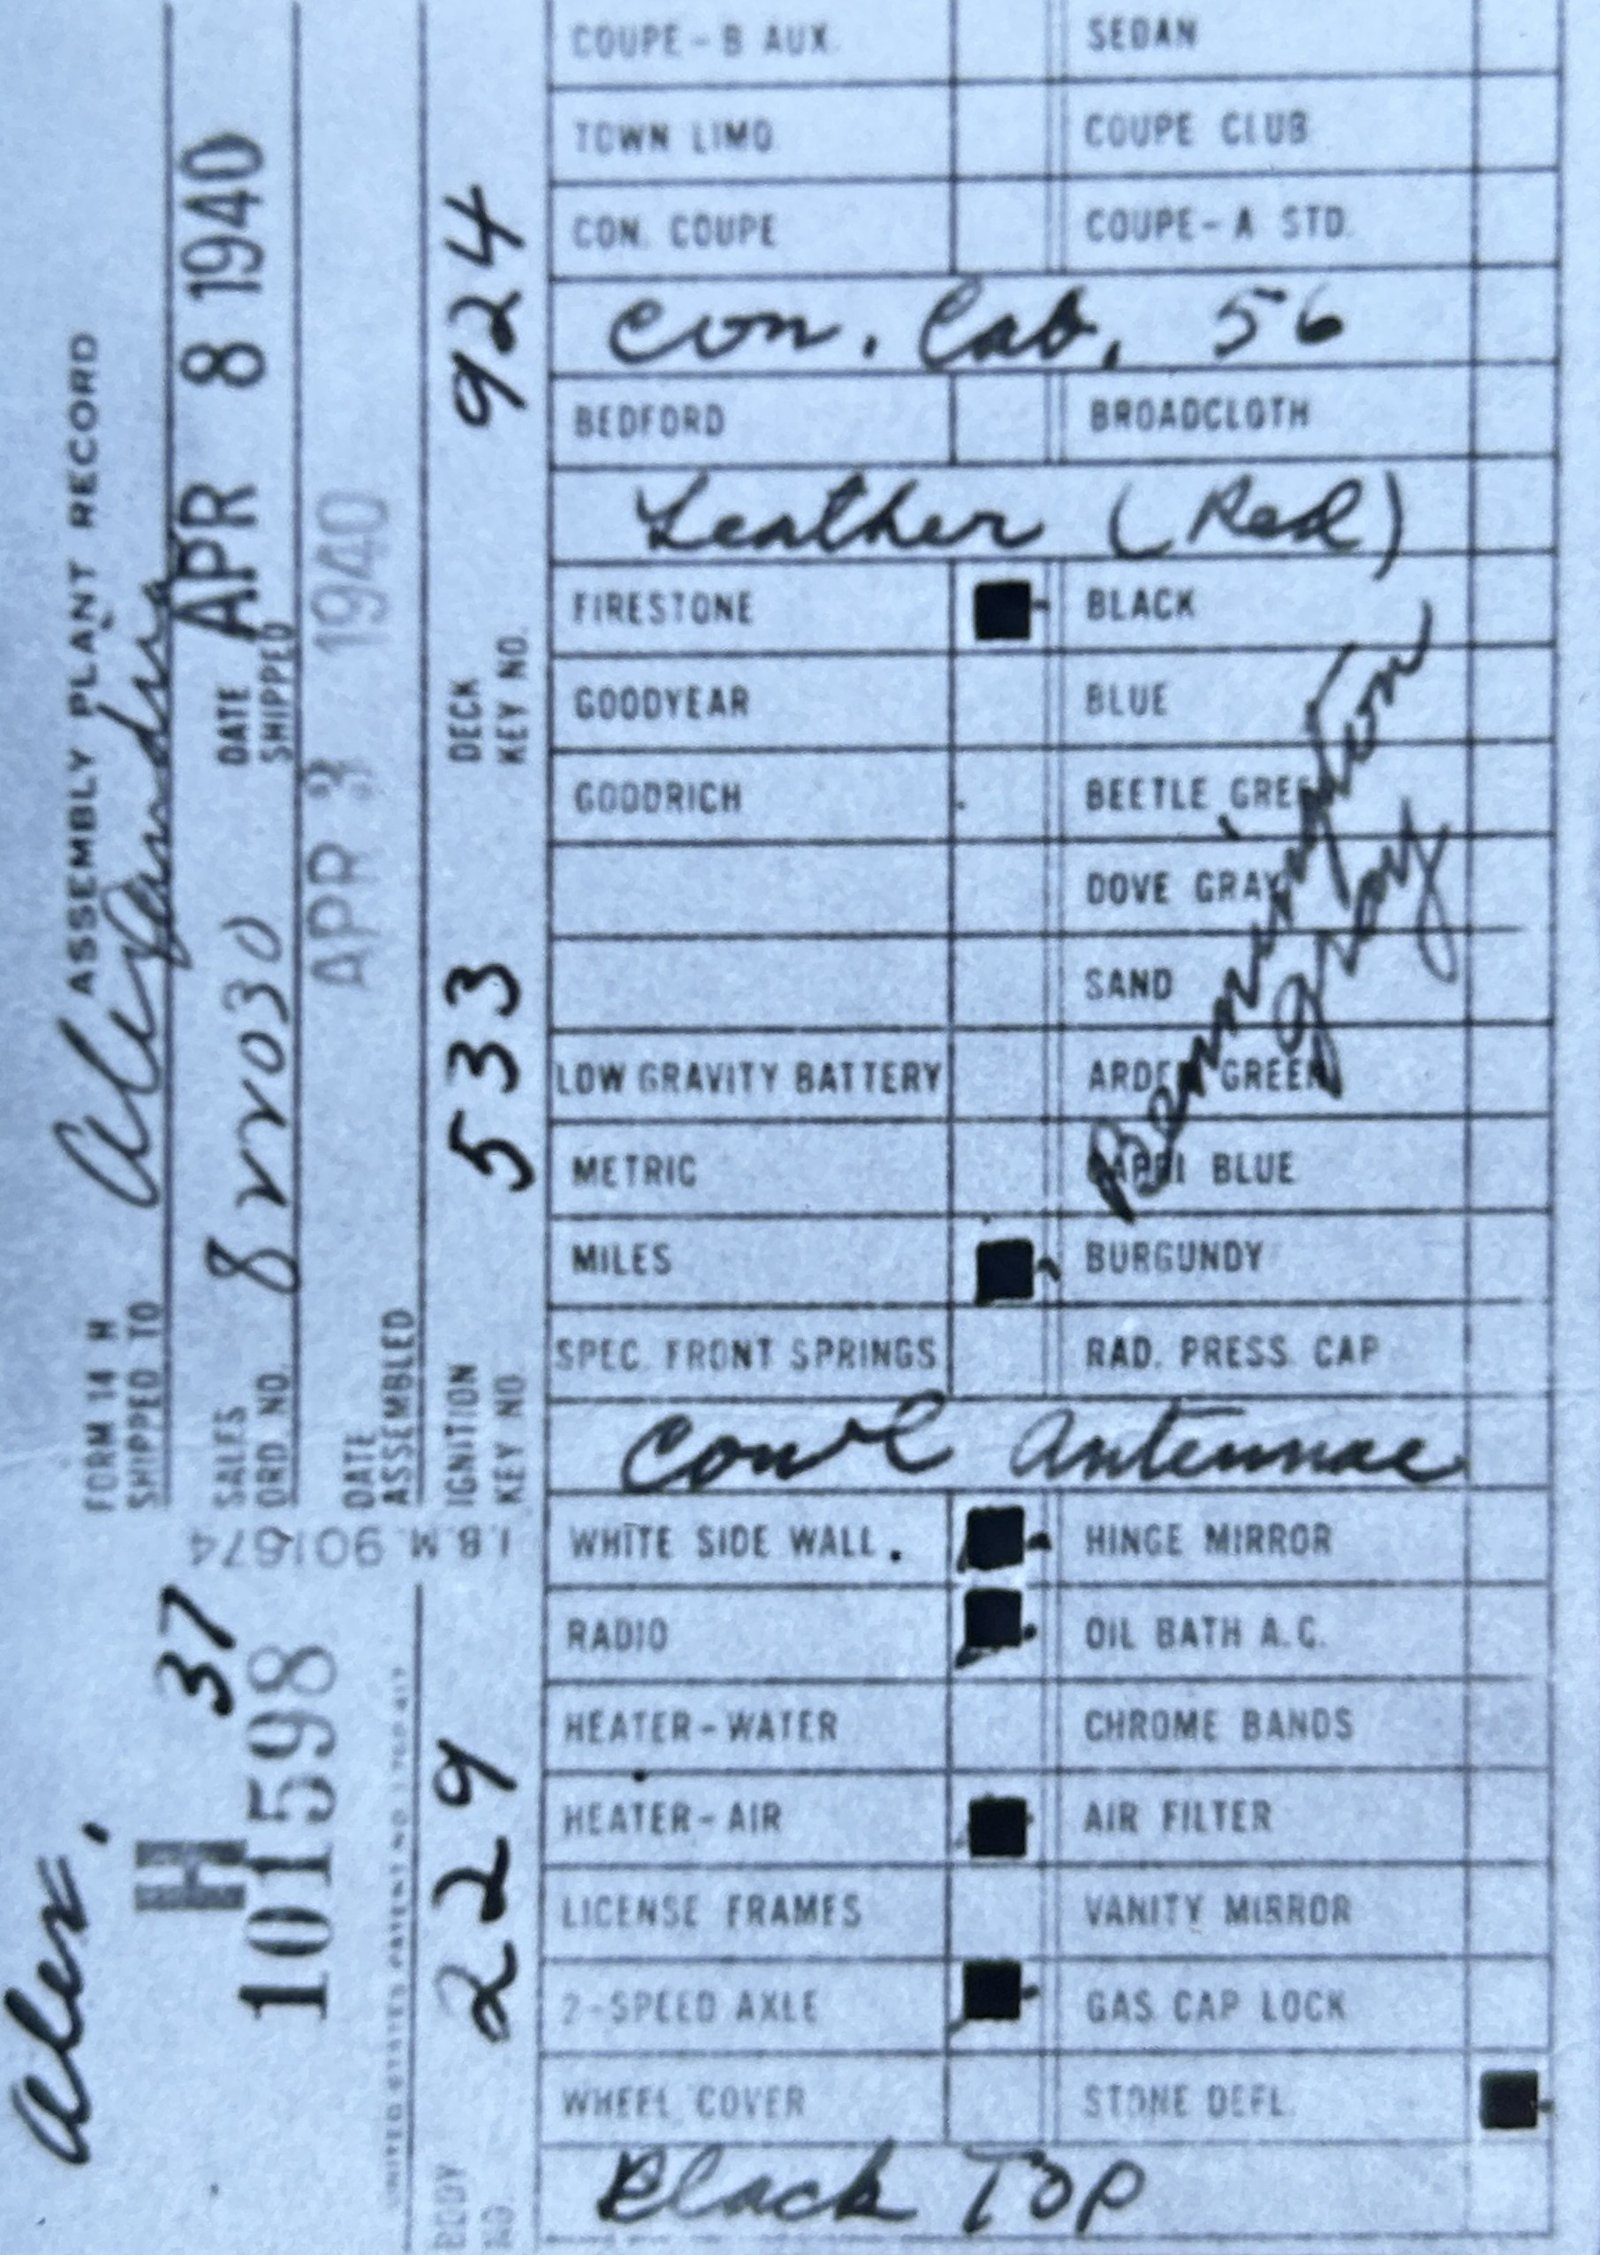 alex.
FORM 14 H
ASSEMBLY PLANT RECORD
SHIPPED TO
H 37
101598
SALES
ORD. NO.
8 22030
DATE
SHIPPED
APR 8 1940
DATE
ASSEMBLED
APR 3 1940
I.B.M. 901674
UNITED STATES PATENT NO.
BODY
NO.
229
IGNITION
KEY NO
533
DECK
KEY NO.
924
COUPE-B AUX. SEDAN
TOWN LIMO COUPE CLUB
CON. COUPE COUPE-A STD.
Con. Cab. 56
BEDFORD BROADCLOTH
Leather (Red)
FIRESTONE BLACK
GOODYEAR BLUE
GOODRICH BEETLE GREEN
DOVE GRAY
SAND
Bennington
gray
LOW GRAVITY BATTERY ARDEN GREEN
METRIC CAPRI BLUE
MILES BURGUNDY
SPEC. FRONT SPRINGS RAD. PRESS. CAP
Cowl antennae
WHITE SIDE WALL. HINGE MIRROR
RADIO OIL BATH A.C.
HEATER-WATER CHROME BANDS
HEATER-AIR AIR FILTER
LICENSE FRAMES VANITY MIRROR
2-SPEED AXLE GAS CAP LOCK
WHEEL COVER STONE DEFL.
Black Top